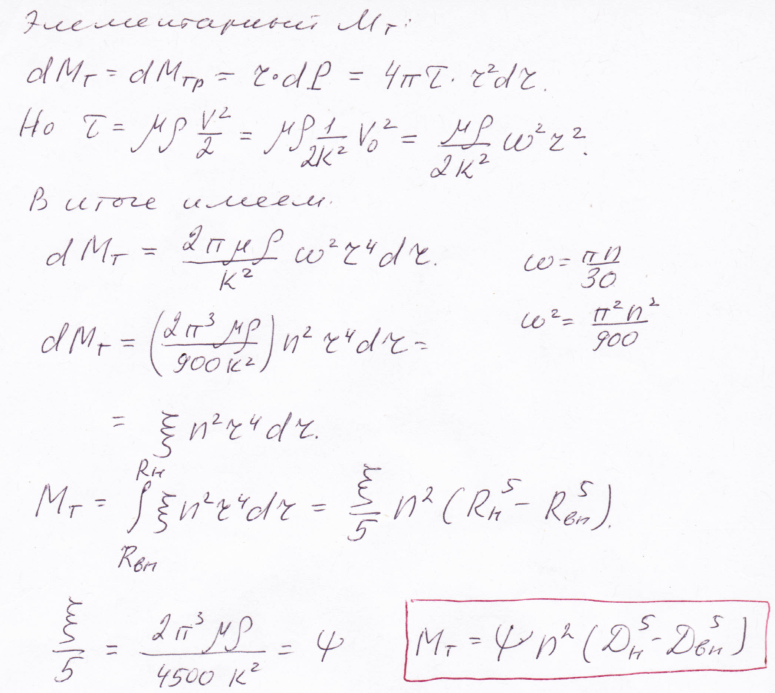 Элементарный Mт:
dMт = dMтр = r·dP = 4πτ·r²dr.
Но τ = μρ V²/2 = μρ 1/2K² V₀² = μρ/2K² ω²r².
В итоге имеем.
dMт = 2πμρ/K² ω²r⁴dr. ω = πn/30
dMт = (2π³μρ/900K²) n²r⁴dr = ω² = π²n²/900
= ξn²r⁴dr.
Mт = ∫_{Rвн}^{Rн} ξn²r⁴dr = ξ/5 n²(Rн⁵ - Rвн⁵).
ξ/5 = 2π³μρ/4500K² = ψ Mт = ψn²(Dн⁵ - Dвн⁵)